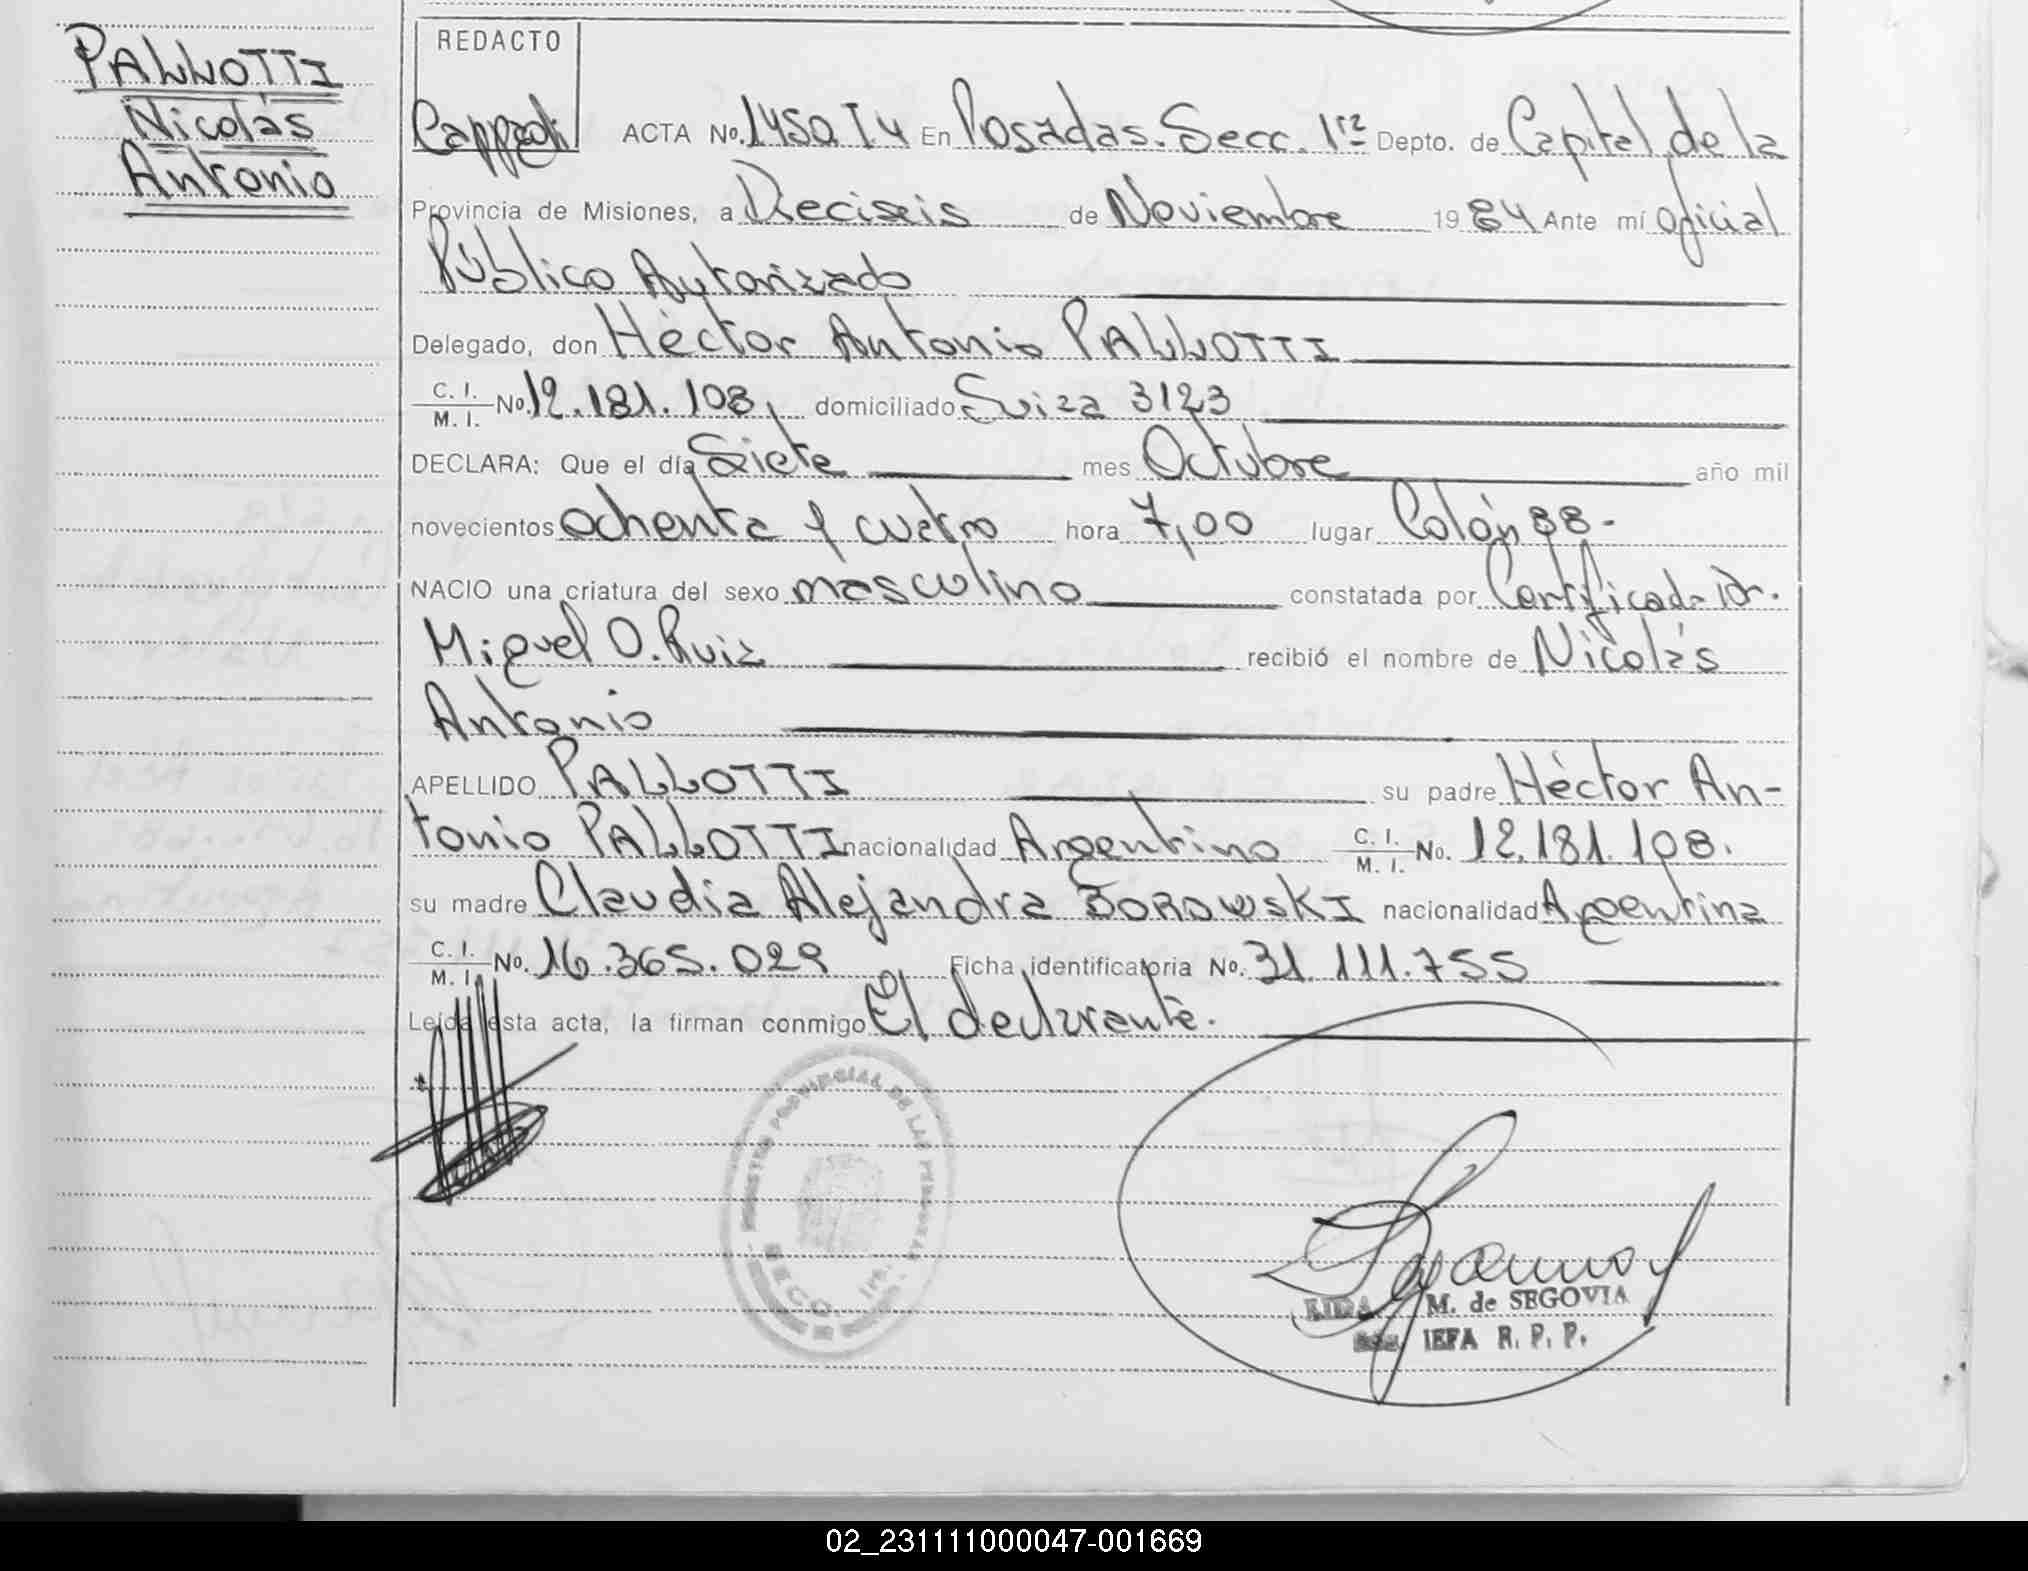 PALLOTTI
Nicolás
Antonio
REDACTO
ACTA No. 1450. T4 En Posadas. Secc. 1ra Depto. de Capital de la
Provincia de Misiones, a Dieciseis de Noviembre 1984 Ante mí oficial
Público Autorizado
Delegado, don Héctor Antonio PALLOTTI
C. I.
M. I. No. 12.181.108, domiciliado Suiza 3123
DECLARA: Que el día Siete mes Octubre año mil
novecientos ochenta y cuatro hora 7,00 lugar Colón 88-
NACIO una criatura del sexo masculino constatada por Certificado Dr.
Miguel O. Ruiz recibió el nombre de Nicolás
Antonio
APELLIDO PALLOTTI su padre Héctor An-
tonio PALLOTTI nacionalidad Argentino C. I.
M. I. No. 12.181.108.
su madre Claudia Alejandra BOROWSKI nacionalidad Argentina
C. I.
M. I. No. 16.365.029 Ficha identificatoria No. 31.111.755
Leída esta acta, la firman conmigo El declarante.
REGISTRO PROVINCIAL DE LAS PERSONAS
SECC. 1ra.
M. de SEGOVIA
R. P. P.
02_231111000047-001669